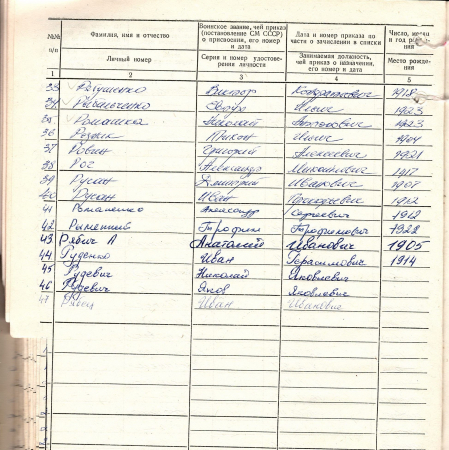 №№ п/п
Фамилия, имя и отчество
Личный номер
Воинское звание, чей приказ (постановление СМ СССР) о присвоении, его номер и дата
Серия и номер удостоверения личности
Дата и номер приказа по части о зачислении в списки
Занимаемая должность, чей приказ о назначении, его номер и дата
Число, месяц и год рождения
Место рождения
1 2 3 4 5
33 Виктор 1918
34 Федор 1923
35 Ромашка Николай 1923
36 Тихон 1904
37 Ровин Григорий Алексеевич 1921
38 Рог Александр Михайлович 1917
39 Русан Дмитрий Иванович 1907
40 Русан Иван 1912
41 Романенко Александр Сергеевич 1912
42 Трофим Трофимович 1922
43 Рябич А Анатолий Иванович 1905
44 Руденко Иван Герасимович 1914
45 Рудевич Николай Яковлевич
46 Рудевич Яков Яковлевич
47 Иван Иванович